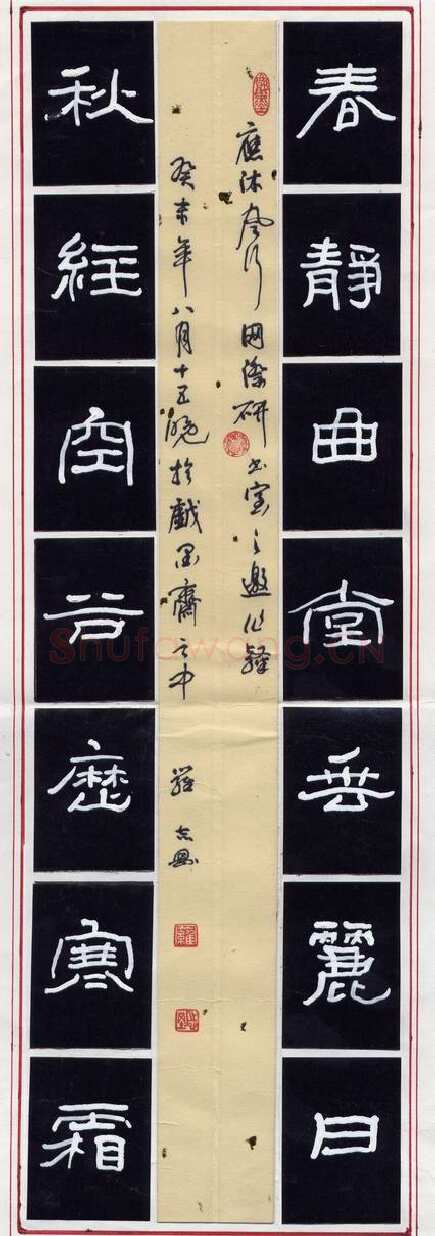 春靜曲堂垂麗日
應沐風行國際研書室之邀
癸未年八月十五晚於戲墨齋之中
羅志
秋經空谷歷寒霜
Shufawang.CN